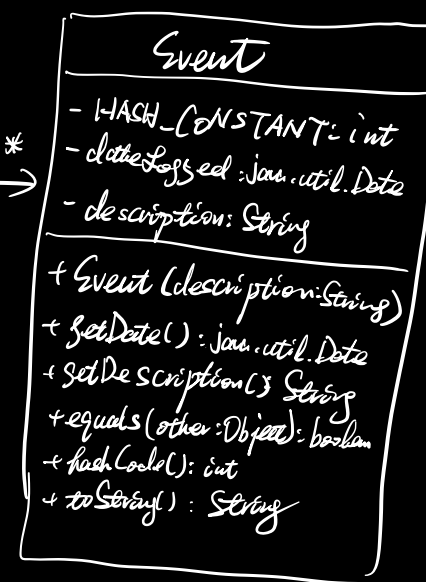 Event
- HASH_CONSTANT: int
*
- dateLogged: java.util.Date
- description: String
+ Event (description: String)
+ getDate(): java.util.Date
+ getDescription(): String
+ equals(other: Object): boolean
+ hashCode(): int
+ toString(): String